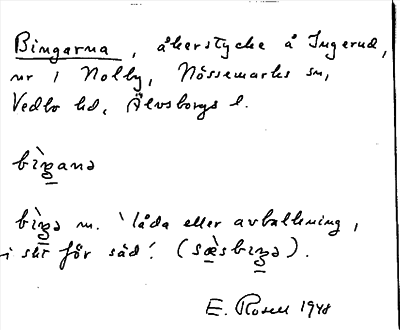 Bingarna, åkerstycke å Ingerud,
nr 1 Nolby, Nössemarks sn,
Vedbo hd, Älvsborgs l.
bìŋana
bìŋə m. 'låda eller avbalkning,
i skt för säd'. (sæ̀sbiŋə).
E. Rosell 1948